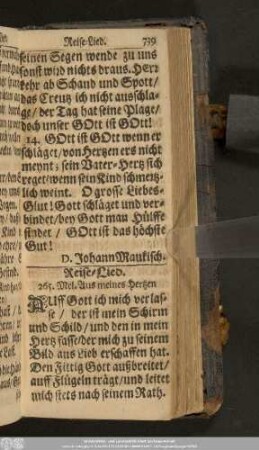 Reise-Lied. 739
seinen Segen wende zu uns
sonst wird nichts draus. Herr
kehr ab Schand und Spott/
das Creutz ich nicht ausschla-
ge/ der Tag hat seine Plage/
doch unser GOtt ist GOtt!
14. GOtt ist GOtt wenn er
schläget/ von Hertzen ers nicht
meynt; sein Vater-Hertz sich
reget/ wenn sein Kind schmertz-
lich weint. O grosse Liebes-
Glut! Gott schlägt und ver-
bindet/ bey Gott man Hülffe
findet/ GOtt ist das höchste
Gut!
D. Johann Maukisch.
Reise-Lied.
265. Mel. Aus meines Hertzen
AUff Gott ich mich verlas-
se/ der ist mein Schirm
und Schild/ und den in mein
Hertz fasse/ der mich zu seinem
Bild aus Lieb erschaffen hat.
Den Fittig Gott außbreitet/
auff Flügeln trägt/ und leitet
mich stets nach seinem Rath.